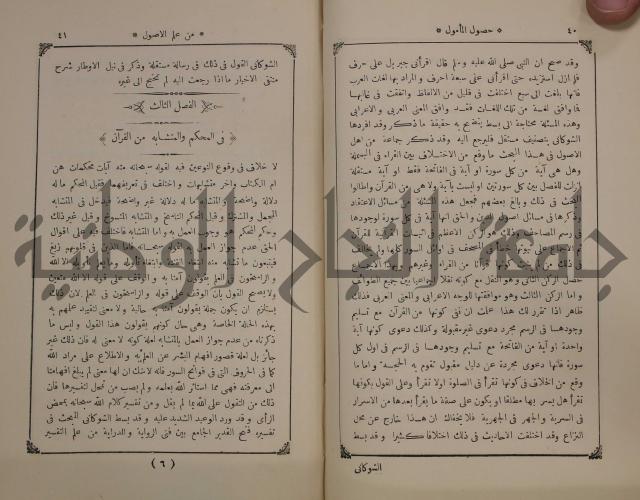 ٤٠ * حصول المأمول *
وقد صح عن النبى صلى الله عليه وسلم قال اقرأنى جبريل على حرف
فلم ازل استزيده حتى اقرأنى على سبعة احرف والمراد بها لغات العرب
فانها بلغت الى سبع اختلفت فى قليل من الالفاظ واتفقت فى غالبها
فما وافق لغة من تلك اللغات فقد وافق المعنى العربى و الاعرابى
وهذه المسئلة محتاجة الى بسط يتضح به حقيقة ما ذكر وقد افردها
الشوكانى بتصنيف مستقل فليرجع اليه وقد ذكر جماعة من اهل
الاصول فى هذا البحث ما وقع من الاختلاف بين القراء فى البسملة
وهل هى آية من كل سورة او آية فى الفاتحة فقط او آية مستقلة
انزلت للفصل بين كل سورتين او ليست بآية ولا هى من القرآن واطالوا
البحث فى ذلك و بالغ بعضهم فجعل هذه المسئلة من مسائل الاعتقاد
وذكرها فى مسائل اصول الدين والحق انها آية من كل سورة لوجودها
فى رسم المصاحف وذلك هو الركن الاعظم فى اثبات القرآنية للقرآن
ثم الاجماع على ثبوتها خطا فى المصحف فى اوائل السور
حصل الركن الثانى وهو النقل مع كونه نقلا اجماعيا بين جميع الطوائف
و اما الركن الثالث وهو موافقتها للوجه الاعرابى والمعنى العربى فذلك
ظاهر اذا تقرر لك هذا علمت ان نفى كونها من القرآن مع تسليم
وجودها فى الرسم مجرد دعوى غير مقبولة وكذلك دعوى كونها آية
واحدة او آية من الفاتحة مع تسليم وجودها فى الرسم فى اول كل
سورة فانها دعوى مجردة عن دليل مقبول تقوم به الحجة واما ما
وقع من الخلاف فى كونها تقرأ فى الصلوة اولا تقرأ وعلى القول بكونها
تقرأ هل يسر بها مطلقا او يكون على صفة ما يقرأ بعدها من الاسرار
فى السرية والجهر فى الجهرية فلا يخفاك ان هذا خارج عن محل
النزاع وقد اختلفت الاحاديث فى ذلك اختلافا كثيرا و قد بسط
الشوكانى
* من علم الاصول * ٤١
الشوكانى القول فى ذلك فى رسالة مستقلة وذكر فى نيل الاوطار شرح
منتقى الاخبار ما اذا رجعت اليه لم تحتج الى غيره
الفصل الثالث
﴿ فى المحكم والمتشابه من القرآن ﴾
لا خلاف فى وقوع النوعين فيه لقوله سبحانه منه آيات محكمات هن
ام الكتاب واخر متشابهات و اختلف فى تعريفهما فقيل المحكم ما له
دلالة واضحة والمتشابه ما له دلالة غير واضحة فيدخل فى المتشابه
المجمل والمشترك وقيل المحكم الناسخ و المتشابه المنسوخ و قيل غير ذلك
وحكم المحكم هو وجوب العمل به و اما المتشابه فاختلف فيه على اقوال
الحق عدم جواز العمل به لقوله سبحانه فاما الذين فى قلوبهم زيغ
فيتبعون ما تشابه منه ابتغاء الفتنة وابتغاء تأويله وما يعلم تأويله الا الله
و الراسخون فى العلم يقولون آمنا به و الوقف على قوله الا الله متعين
ولا يصح القول بان الوقف على قوله و الراسخون فى العلم لان ذلك
يستلزم ان يكون جملة يقولون آمنا به حالية ولا معنى لتقييد علمهم به
بهذه الحالة الخاصة وهى حال كونهم يقولون هذا القول و ليس ما
ذكرناه من عدم جواز العمل بالمتشابه لعلة كونه لا معنى له فان ذلك غير
جائز بل لعلة قصور افهام البشر عن العلم به و الاطلاع على مراد الله
كما فى الحروف التى فى فواتح السور فانه لا شك ان لها معنى لم يبلغ افهامنا
الى معرفته فهى مما استأثر الله بعلمه ولم يصب من تمحل لتفسيرها فان
ذلك من التقول على الله بما لم يقل و من تفسير كلام الله سبحانه بمحض
الرأى و قد ورد الوعيد الشديد عليه و قد بسط الشوكانى البحث فى
تفسيره فتح القدير الجامع بين فنى الرواية و الدراية من علم التفسير
( ٦ )